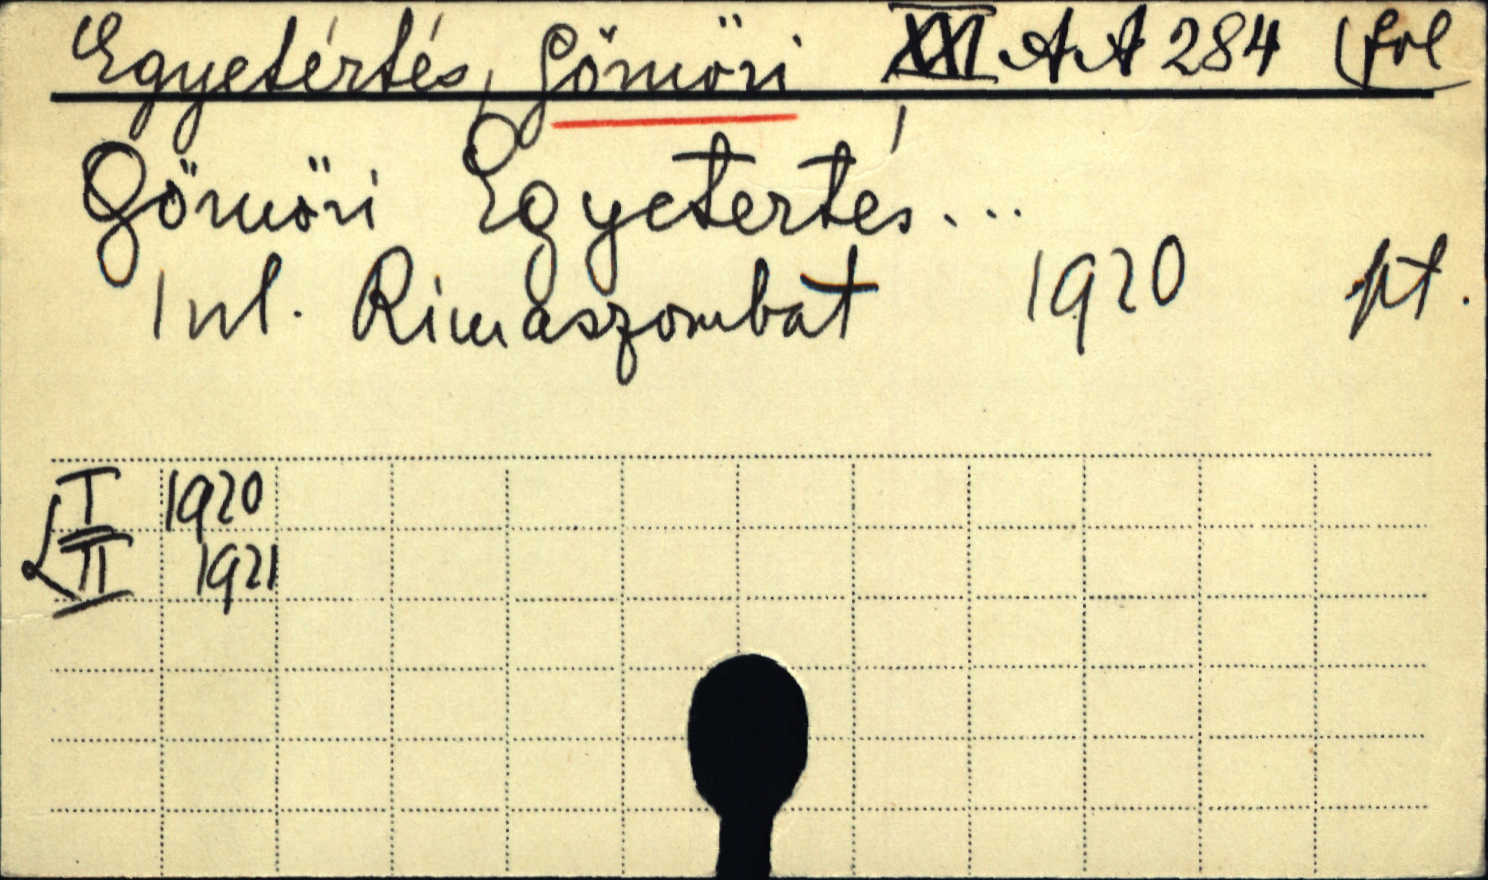 Egyetértés, Gömöri XXI AA 284 (fol
Gömöri Egyetértés...
Rimaszombat 1920 pt.
I 1920
II 1921